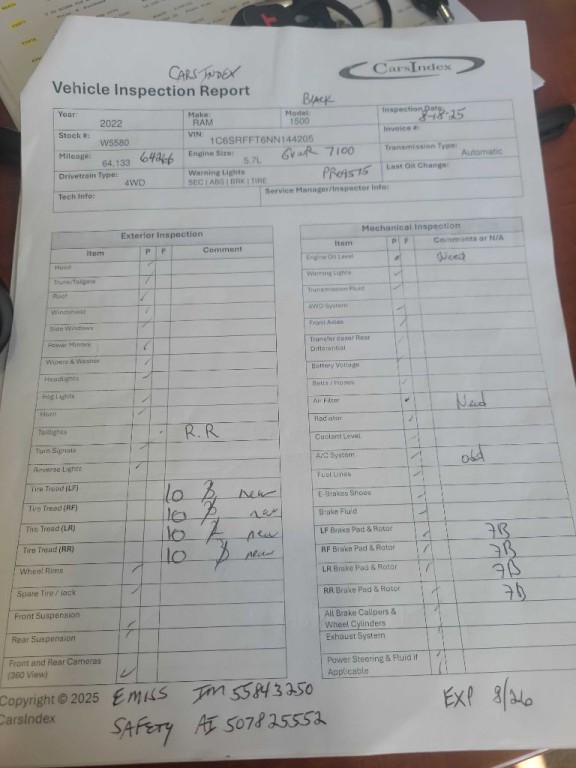 CARS INDEX
CarsIndex
Vehicle Inspection Report
BLACK
Year: 2022 Make: RAM Model: 1500 Inspection Date: 8-18-25
Stock #: W5580 VIN: 1C6SRFFT6NN144205 Invoice #:
Mileage: 64,133 64266 Engine Size: 5.7L GVWR 7100 Transmission Type: Automatic
Drivetrain Type: 4WD Warning Lights SEC | ABS | BRK | TIRE Last Oil Change:
Tech Info: Service Manager/Inspector Info:
Exterior Inspection
Item P F Comment
Hood
Trunk/Tailgate
Roof
Windshield
Side Windows
Power Mirrors
Wipers & Washer
Headlights
Fog Lights
Horn
Taillights R.R
Turn Signals
Reverse Lights
Tire Tread (LF) 10 new
Tire Tread (RF) 10 new
Tire Tread (LR) 10 new
Tire Tread (RR) 10 new
Wheel Rims
Spare Tire / Jack
Front Suspension
Rear Suspension
Front and Rear Cameras
(360 View)
Mechanical Inspection
Item P F Comments or N/A
Engine Oil Level Need
Warning Lights
Transmission Fluid
4WD System
Front Axles
Transfer case/ Rear
Differential
Battery Voltage
Belts / Hoses
Air Filter Need
Radiator
Coolant Level
A/C System
Fuel Lines
E-Brakes Shoes
Brake Fluid
LF Brake Pad & Rotor 7B
RF Brake Pad & Rotor 7B
LR Brake Pad & Rotor 7B
RR Brake Pad & Rotor 7B
All Brake Calipers &
Wheel Cylinders
Exhaust System
Power Steering & Fluid if
Applicable
Copyright © 2025
CarsIndex
EMISS IM 55843250
SAFETY AI 507825552
EXP 8/26